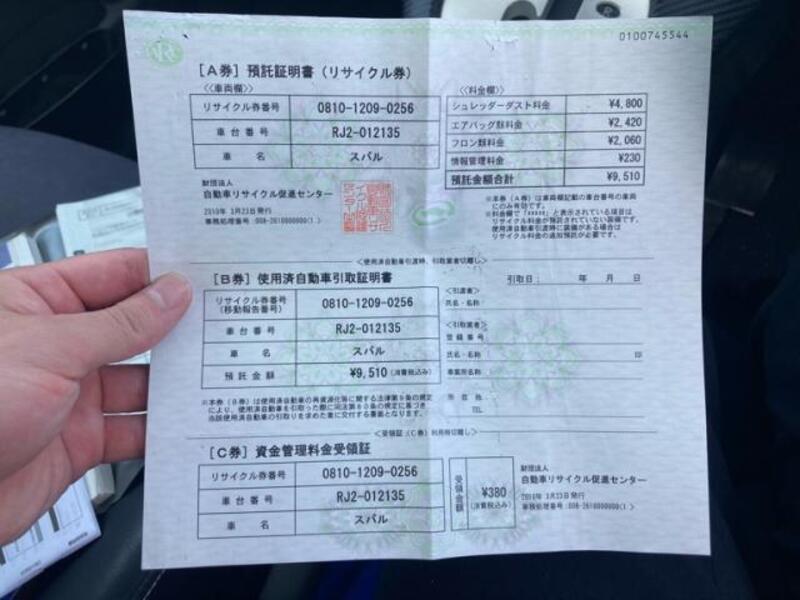 0100745544
[A券] 預託証明書 (リサイクル券)
<<車両欄>>
リサイクル券番号 0810-1209-0256
車台番号 RJ2-012135
車 名 スバル
<<料金欄>>
シュレッダーダスト料金 ¥4,800
エアバッグ類料金 ¥2,420
フロン類料金 ¥2,060
情報管理料金 ¥230
預託金額合計 ¥9,510
財団法人
自動車リサイクル促進センター
2010年 3月23日発行
※本券（A券）は車両欄記載の車台番号の車両
にのみ有効です。
※料金欄で「*****」と表示されている項目は
リサイクル料金が預託されていない装備です。
使用済自動車引渡時に装備がある場合は
リサイクル料金の追加預託が必要です。
<使用済自動車引渡時、引取業者切離し>
[B券] 使用済自動車引取証明書
引取日： 年 月 日
リサイクル券番号
(移動報告番号) 0810-1209-0256
車台番号 RJ2-012135
車 名 スバル
預託金額 ¥9,510 (消費税込み)
<引渡者>
氏名・名称
<引取業者>
登録番号
氏名・名称 印
事業所名称
所在地
TEL
※本券（B券）は使用済自動車の再資源化等に関する法律第9条の規定
により、使用済自動車を引取った際に同法第80条の規定に基づき
当該使用済自動車の引取りを求めた者に交付する書面となります。
<受領証（C券）利用時切離し>
[C券] 資金管理料金受領証
リサイクル券番号 0810-1209-0256
車台番号 RJ2-012135
車 名 スバル
受領金額 ¥380
(消費税込み)
財団法人
自動車リサイクル促進センター
2010年 3月23日発行